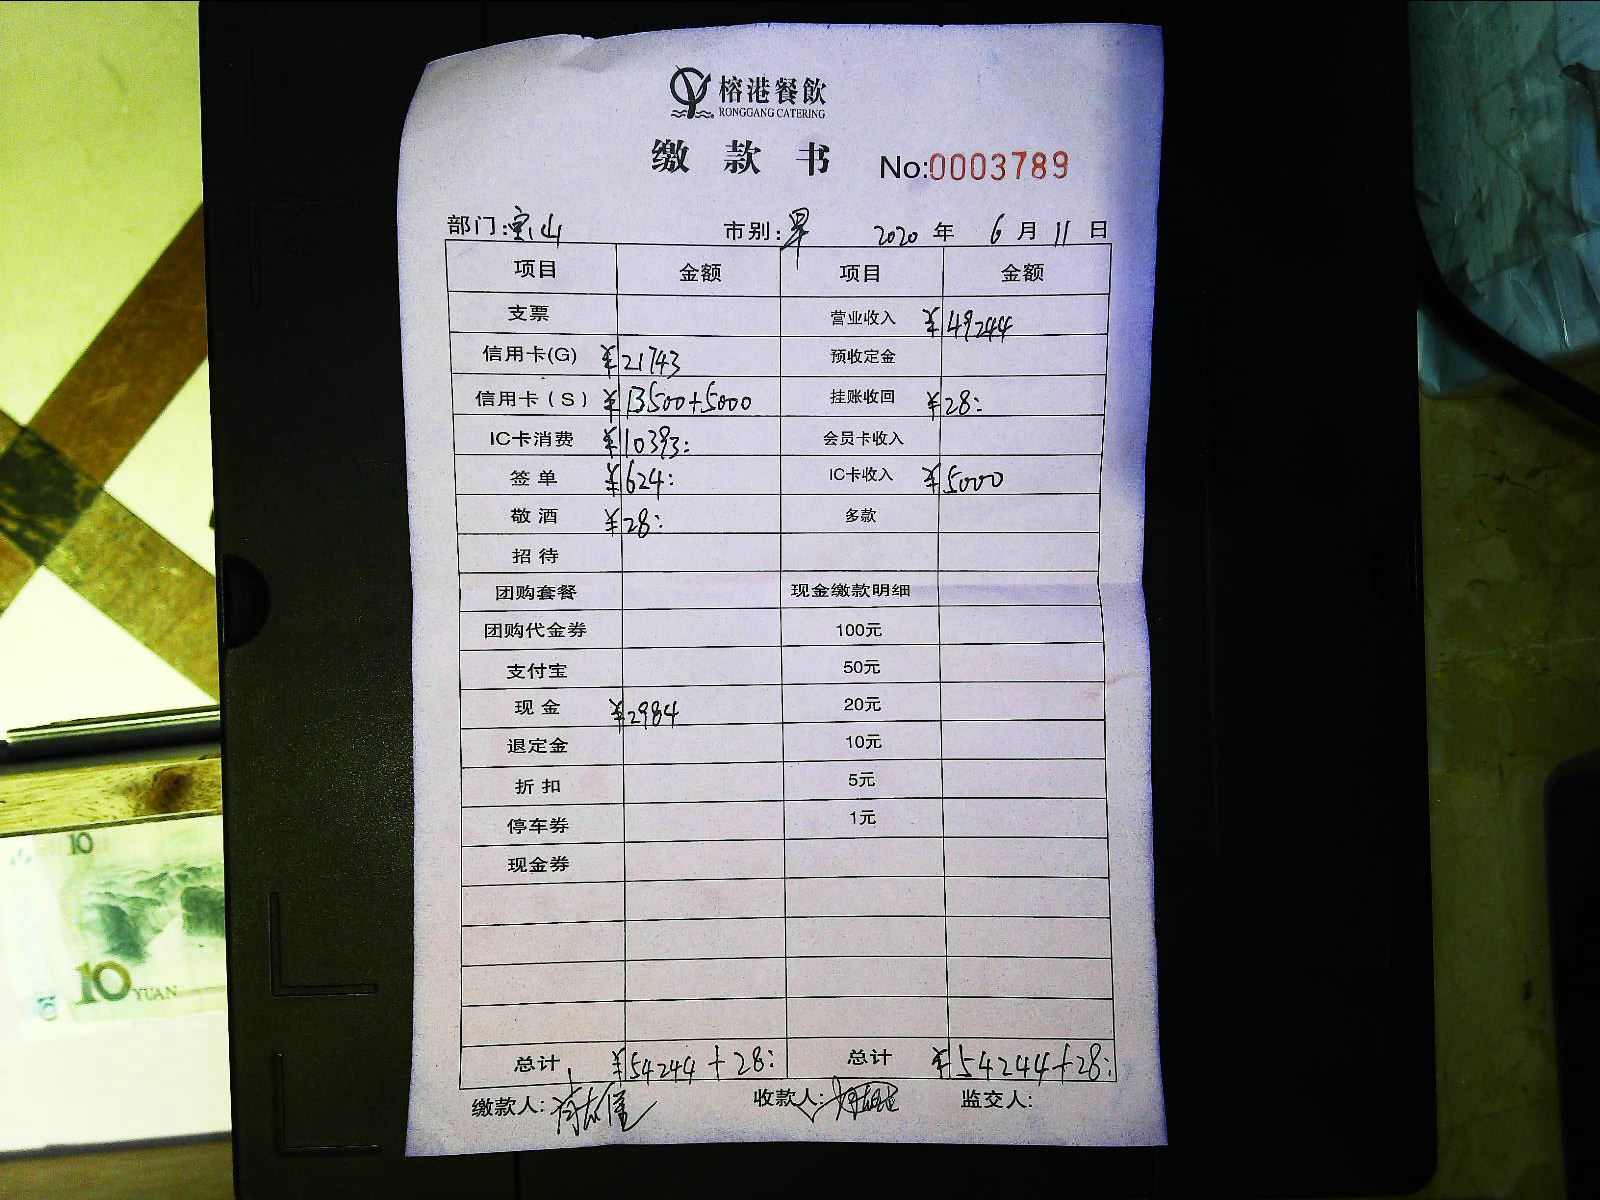 榕港餐飲
RONGGANG CATERING
缴款书 No:0003789
部门:宝山 市别:早 2020年6月11日
项目 金额 项目 金额
支票 营业收入 ¥49244
信用卡(G) ¥21743 预收定金
信用卡(S) ¥13500+5000 挂账收回 ¥28:
IC卡消费 ¥10393: 会员卡收入
签单 ¥624: IC卡收入 ¥5000
敬酒 ¥28: 多款
招待
团购套餐 现金缴款明细
团购代金券 100元
支付宝 50元
现金 ¥2984 20元
退定金 10元
折扣 5元
停车券 1元
现金券
总计 ¥54244+28: 总计 ¥54244+28:
缴款人: 收款人: 监交人:
10
10 YUAN